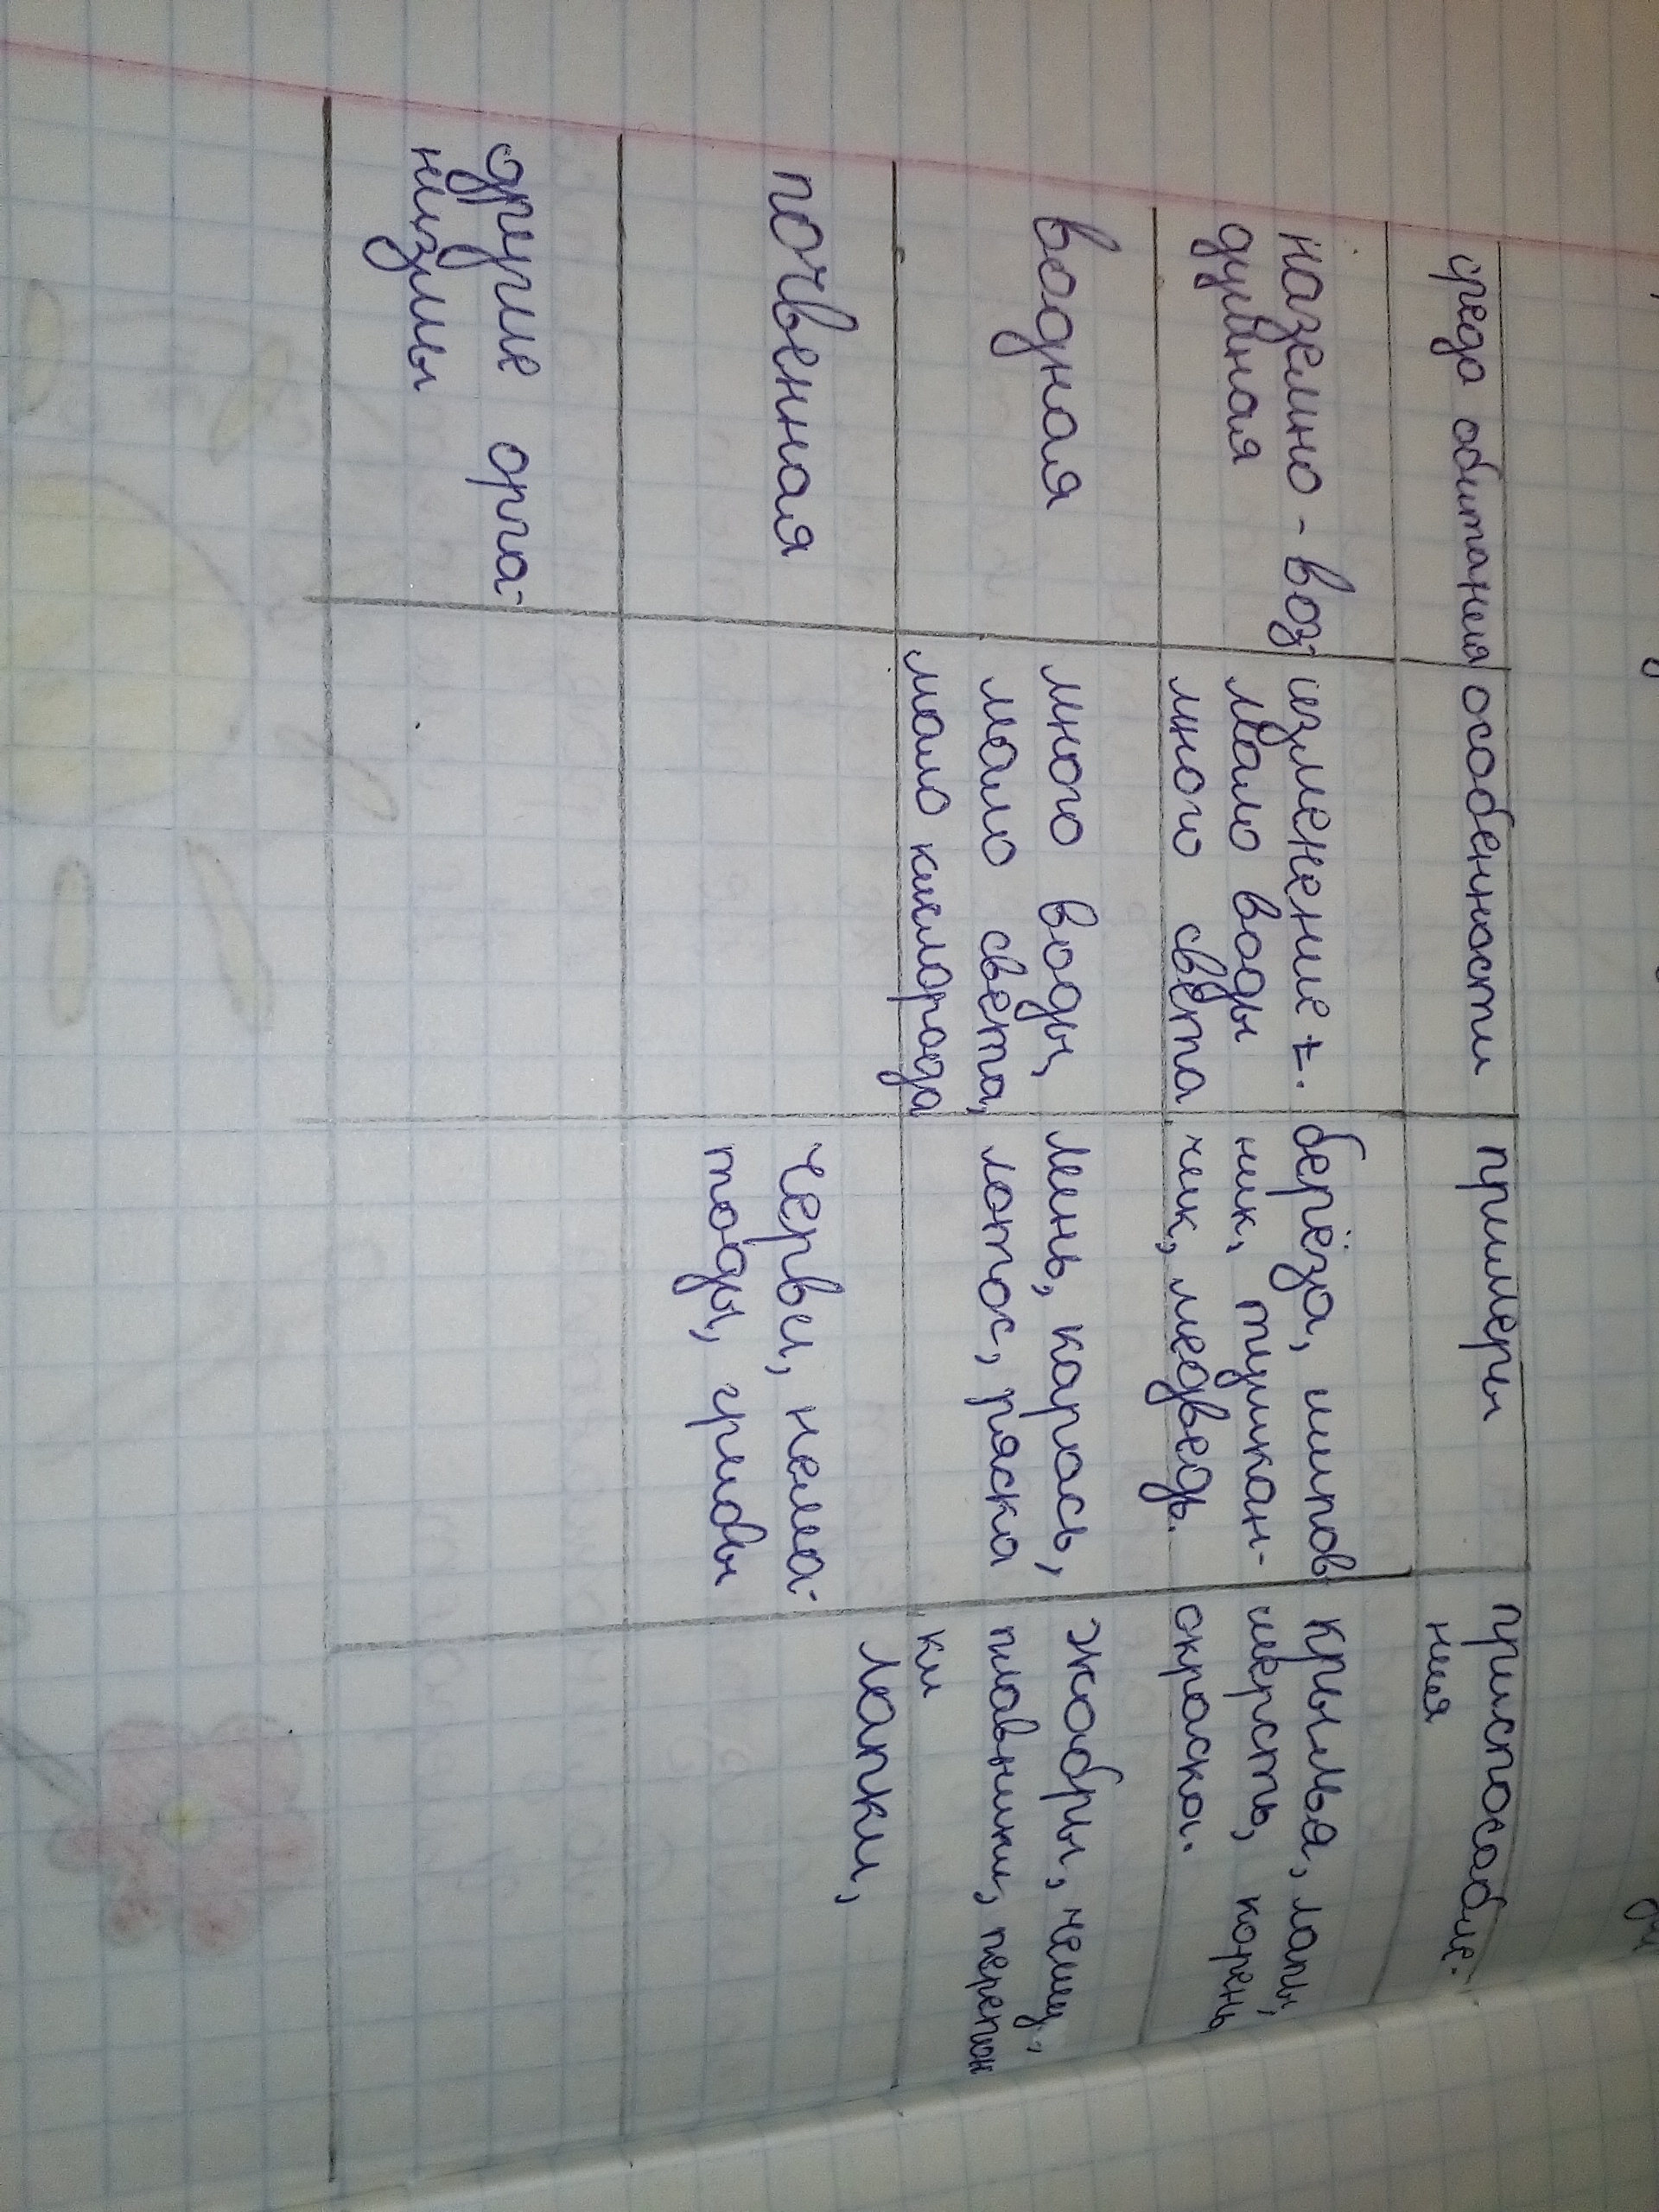 среда обитания
особенности
примеры
приспособле-
ния
наземно-воз
душная
изменение t.
мало воды
много света
берёза, шипов
ник, тушкан-
чик, медведь.
крылья, лапы,
шерсть, корень,
окраска.
водная
много воды,
мало света,
мало кислорода
линь, карась,
лотос, ряска
жабры, чешу.,
плавники, перепон
ки
почвенная
черви, нема-
тоды, грибы
лапки,
другие орга-
низмы